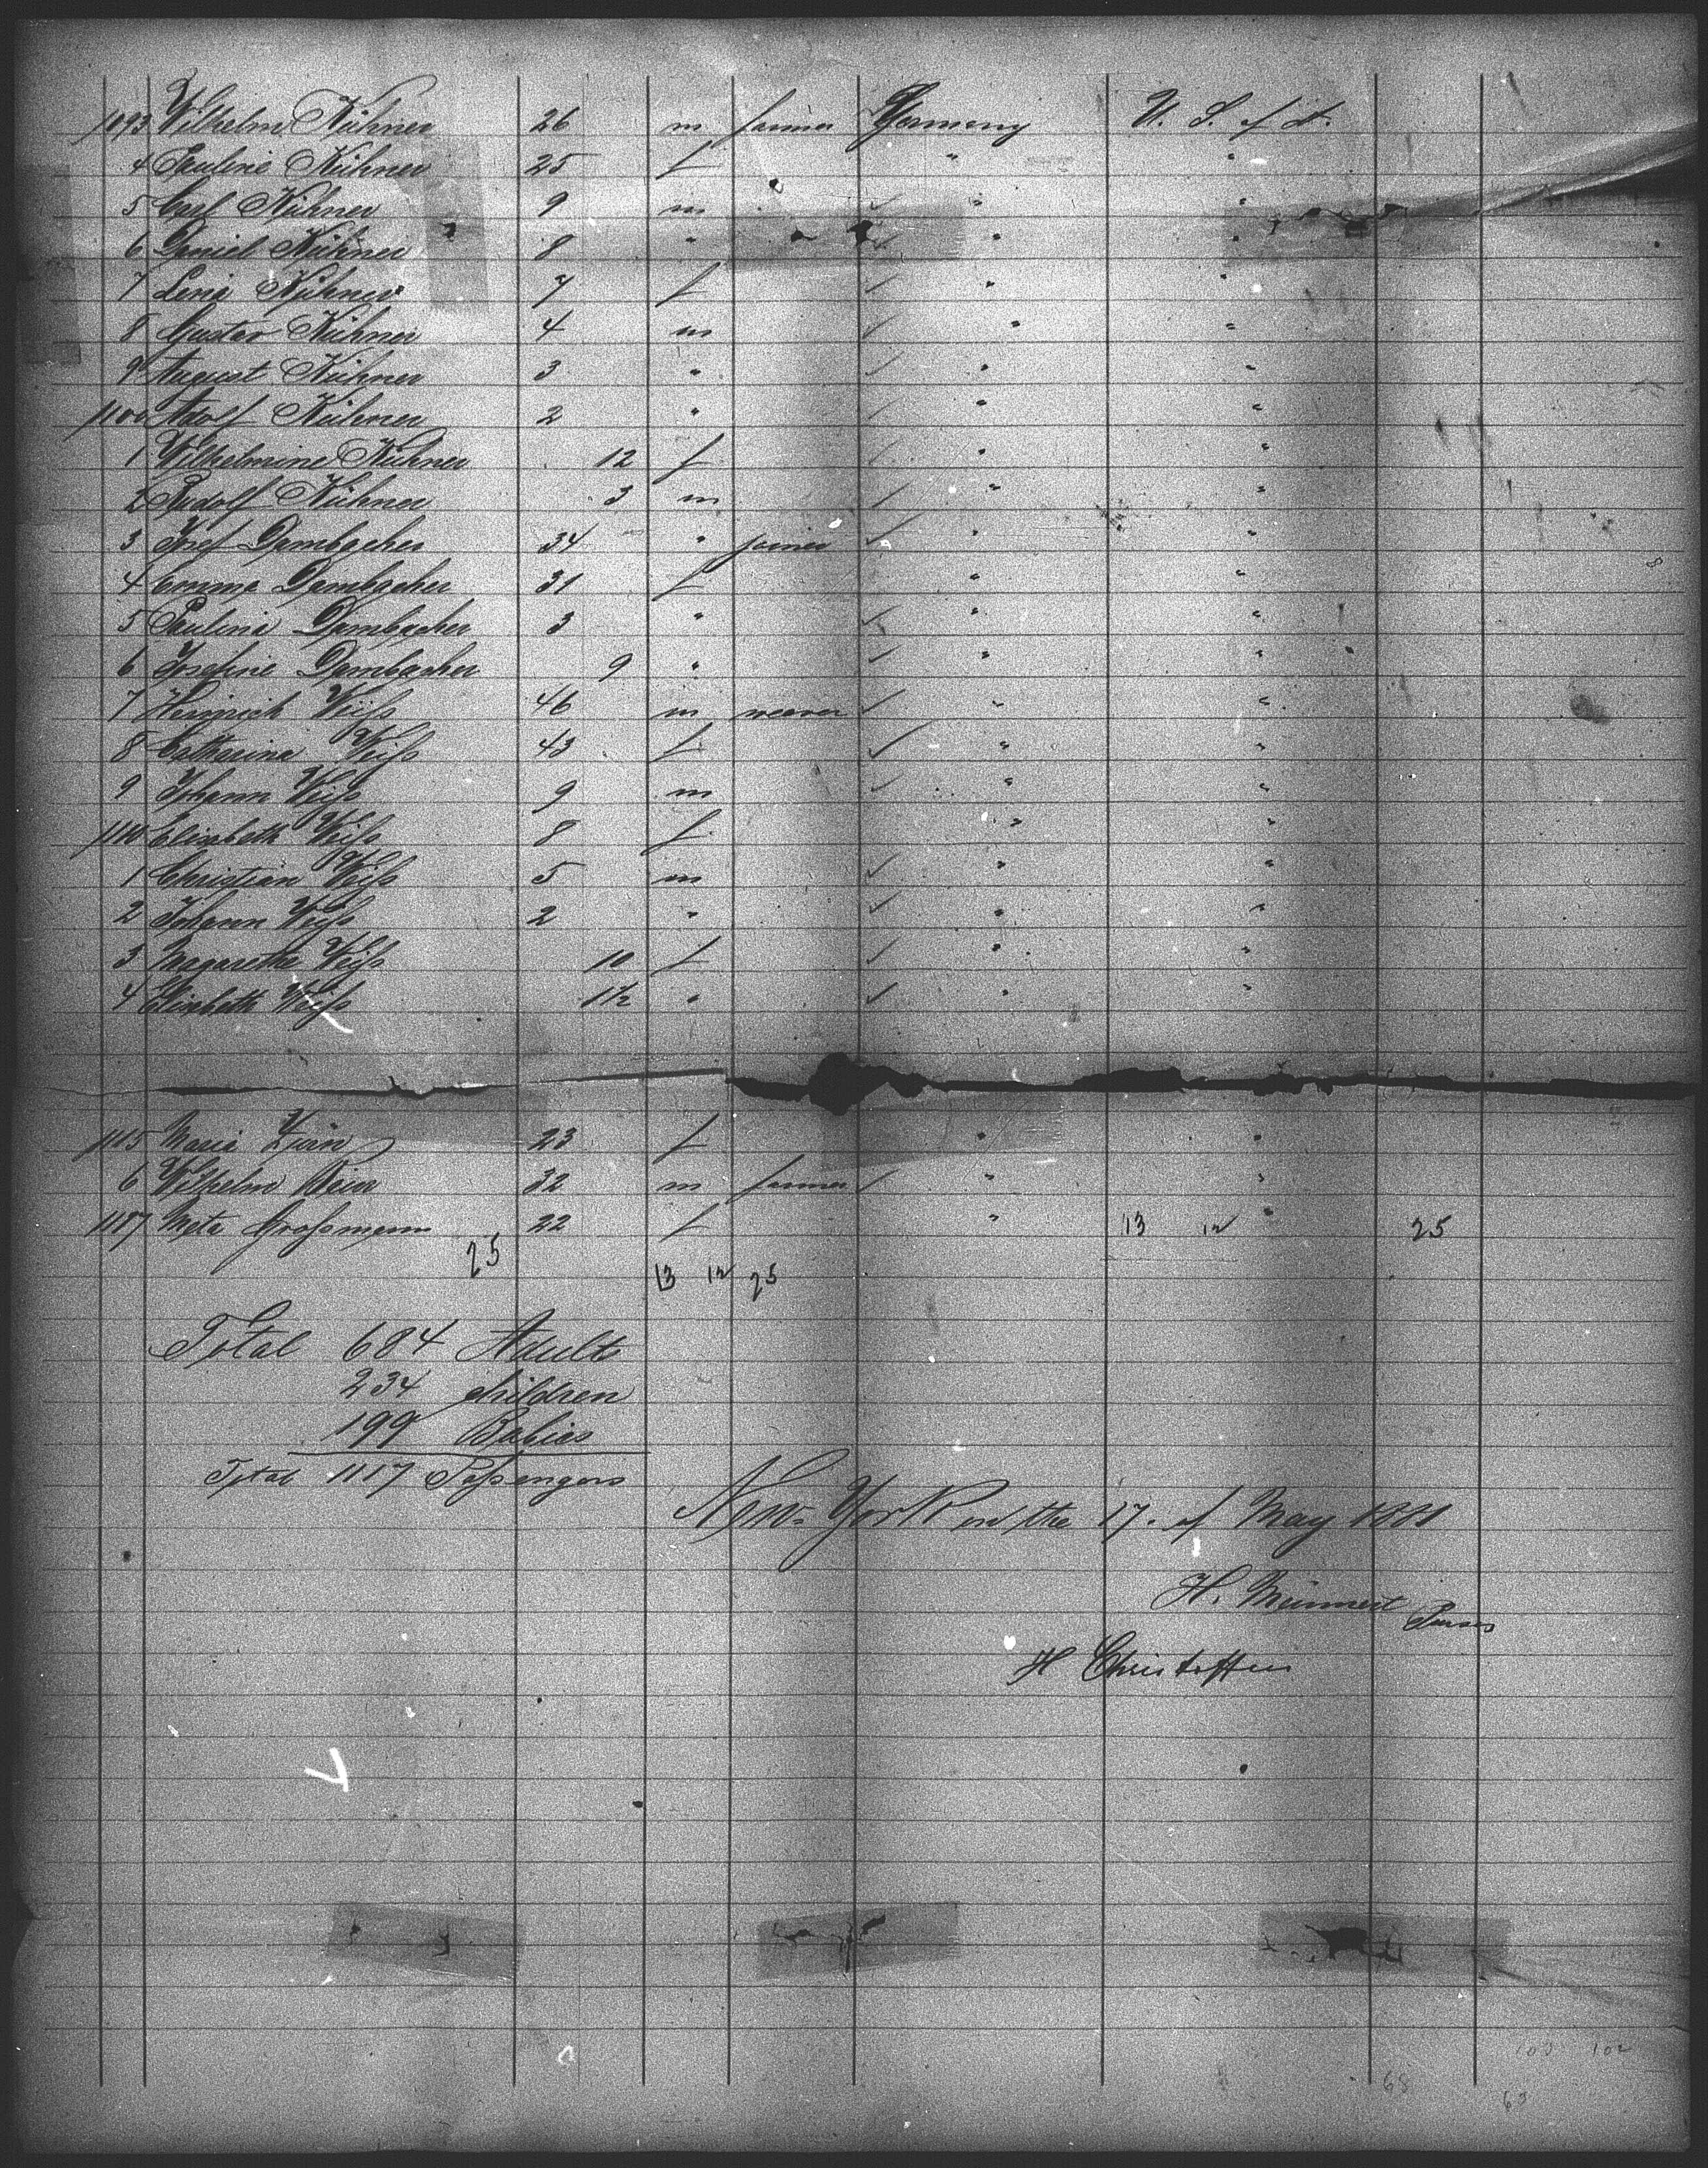 1093 Wilhelm Kühner 26 m farmer Germany U. S. of A.
4 Pauline Kühner 25 f " "
5 Carl Kühner 9 m " "
6 Daniel Kühner 8 " " "
7 Lena Kühner 7 f " "
8 Gustav Kühner 4 m " "
9 August Kühner 3 " " "
1100 Adolf Kühner 2 " " "
1 Wilhelmine Kühner 12 f " "
2 Rudolf Kühner 3 m " "
3 Josef Dambacher 34 " joiner " "
4 Emma Dambacher 31 f " "
5 Paulina Dambacher 3 " " "
6 Josefine Dambacher 9 " " "
7 Heinrich Weiß 46 m weaver " "
8 Catharina Weiß 43 f " "
9 Johann Weiß 9 m " "
1110 Elisabeth Weiß 8 f " "
1 Christian Weiß 5 m " "
2 Johann Weiß 2 " " "
3 Magaretha Weiß 10 f " "
4 Elisabeth Weiß 1½ " " "
1115 Maria 23 f " "
6 Wilhelm 32 m farmer " "
1117 Meta Großmann 22 f " 13 12 " 25
25
13 12 25
Total 684 Adults
234 children
199 Babies
Total 1117 Paßengers
New-York on the 17. of May 1881
H. Meinert Purser
H Christoffers
103 102
68
69